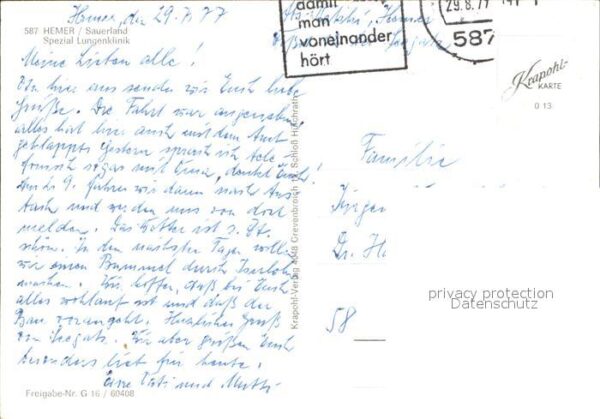 Hemer, den 29.7.77
587 HEMER / Sauerland
Spezial Lungenklinik
Meine Lieben alle!
Von hier aus senden wir Euch liebe
Grüße. Die Fahrt war angenehm,
alles hat hier auch mit dem Amt
geklappt. Gestern sprach ich tele
fonisch sogar mit Oma, denkt Euch!
Am 9. fahren wir dann nach
und werden uns von dort
melden. Das Wetter ist z. Zt.
schön. In den nächsten Tagen wollen
wir einen Bummel durch Iserlohn
machen. Wir hoffen, daß bei Euch
alles wohlauf ist und daß der
Bau vorangeht. Herzlichen Gruß
von Wir aber grüßen Euch
besonders lieb für heute.
Eure Vati und Mutti
Freigabe-Nr. G 16 / 60408
Krapohl-Verlag 4048 Grevenbroich Schloß Hülchrath
damit
man
voneinander
hört
29.8.77
587
Krapohl-
KARTE
0 13
Familie
Jürgen
Dr. H
58
privacy protection
Datenschutz